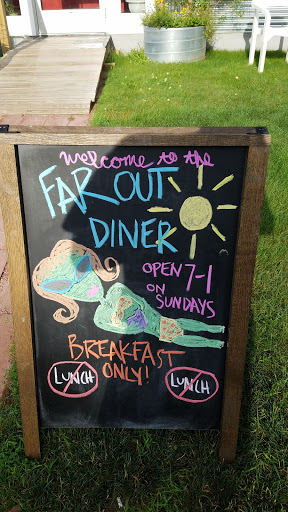 Welcome to the
FAR OUT
DINER
OPEN 7-1
ON
SUNDAYS
BREAKFAST
ONLY!
LUNCH
LUNCH